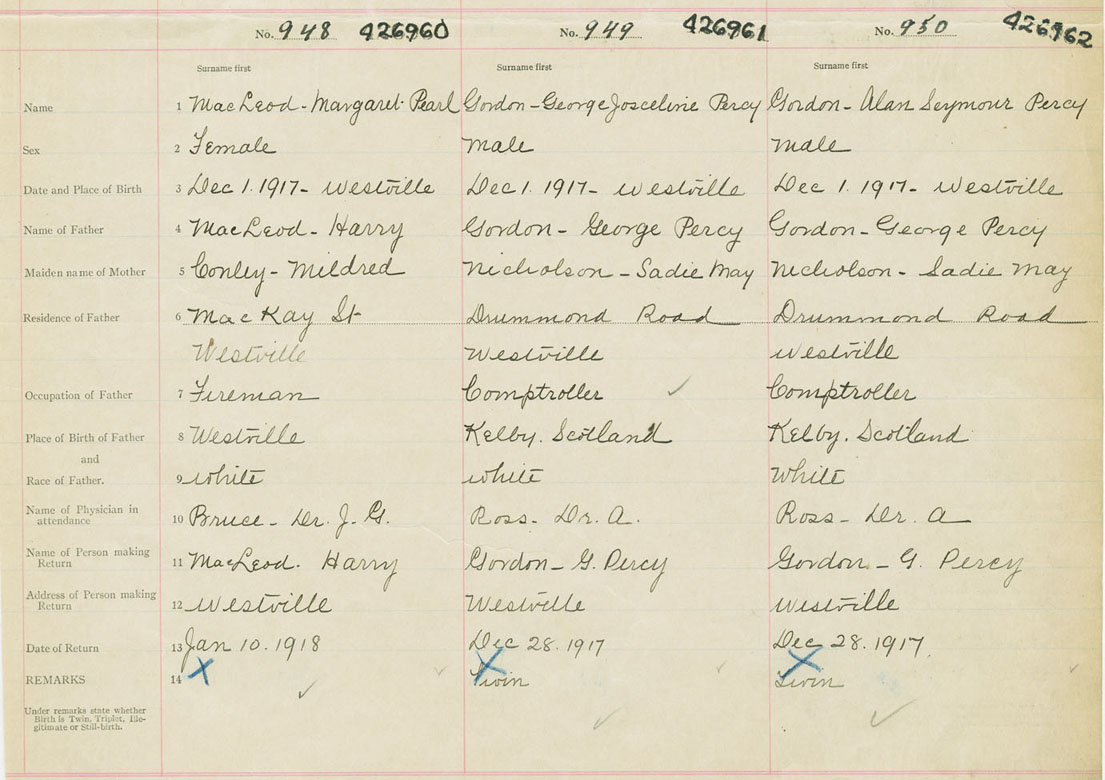 No. 948 426960 No. 949 426961 No. 950 426962
Surname first Surname first Surname first
Name 1 MacLeod - Margaret Pearl Gordon - George Josceline Percy Gordon - Alan Seymour Percy
Sex 2 Female Male Male
Date and Place of Birth 3 Dec 1. 1917 - Westville Dec 1. 1917 - Westville Dec 1. 1917 - Westville
Name of Father 4 MacLeod - Harry Gordon - George Percy Gordon - George Percy
Maiden name of Mother 5 Conley - Mildred Nicholson - Sadie May Nicholson - Sadie May
Residence of Father 6 MacKay St Drummond Road Drummond Road
Westville Westville Westville
Occupation of Father 7 Fireman Comptroller Comptroller
Place of Birth of Father 8 Westville Kelby. Scotland Kelby. Scotland
and
Race of Father. 9 White White White
Name of Physician in attendance 10 Bruce - Dr. J. G. Ross - Dr. A. Ross - Dr. A
Name of Person making Return 11 MacLeod. Harry Gordon - G. Percy Gordon - G. Percy
Address of Person making Return 12 Westville Westville Westville
Date of Return 13 Jan 10. 1918 Dec 28. 1917 Dec 28. 1917.
REMARKS 14 X X Twin X Twin
Under remarks state whether
Birth is Twin, Triplet, Ille-
gitimate or Still-birth.